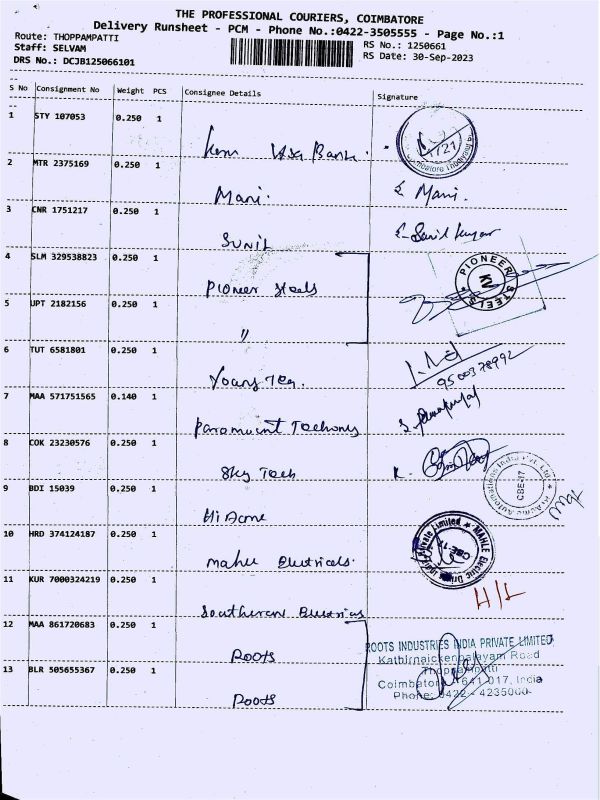 THE PROFESSIONAL COURIERS, COIMBATORE
Delivery Runsheet - PCM - Phone No.:0422-3505555 - Page No.:1
Route: THOPPAMPATTI
Staff: SELVAM
DRS No.: DCJB125066101
RS No.: 1250661
RS Date: 30-Sep-2023
S No Consignment No Weight PCS Consignee Details Signature
1 STY 107053 0.250 1
Bank
2 MTR 2375169 0.250 1
Mani. Mani.
3 CNR 1751217 0.250 1
SUNIL Sunil Kumar
4 SLM 329538823 0.250 1
Pioneer Steels
PIONEER STEELS
KV
5 UPT 2182156 0.250 1
"
6 TUT 6581801 0.250 1
9500378992
7 MAA 571751565 0.140 1
Paramount
8 COK 23230576 0.250 1
Sky Tech
9 BDI 15039 0.250 1
Hi Acme
CBE-17
10 HRD 374124187 0.250 1
Mahle Electricals.
MAHLE Electric Drives India Private Limited
CBE-17
11 KUR 7000324219 0.250 1
H/L
12 MAA 861720683 0.250 1
ROOTS
13 BLR 505655367 0.250 1
ROOTS
ROOTS INDUSTRIES INDIA PRIVATE LIMITED
Kathirnaickenpalayam Road
Thoppampatti
Coimbatore - 641 017, India
Phone: 0422 - 4235000